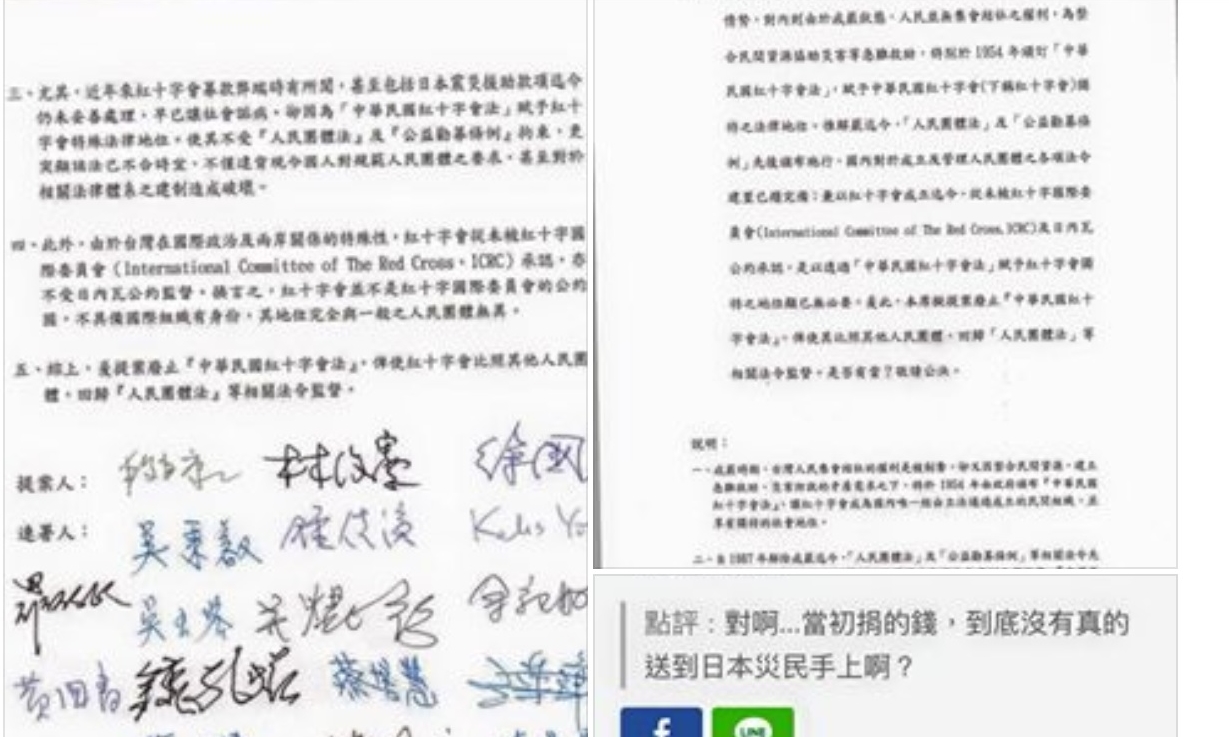 三、尤其,近年來紅十字會募款弊端時有所聞,甚至包括日本震災援助款項迄今
仍未妥善處理,早已讓社會詬病,卻因為「中華民國紅十字會法」賦予紅十
字會特殊法律地位,使其不受『人民團體法』及『公益勸募條例』拘束,更
突顯該法已不合時宜,不僅違背現今國人對規範人民團體之要求,甚至對於
相關法律體系之建制造成破壞。
四、此外,由於台灣在國際政治及兩岸關係的特殊性,紅十字會從未被紅十字國
際委員會(International Committee of The Red Cross、ICRC)承認,亦
不受日內瓦公約的監督。換言之,紅十字會並不是紅十字國際委員會的公約
國,不具備國際組織有身份,其地位完全與一般之人民團體無異。
五、綜上,爰提案廢止『中華民國紅十字會法』,俾使紅十字會比照其他人民團
體,回歸『人民團體法』等相關法令監督。
提案人:
林俊憲
徐國
連署人:
吳秉叡
鍾佳濱
Kolas Yo
吳玉琴
吳焜裕
余宛如
鍾孔炤
蔡培慧
情勢,對內則由於戒嚴狀態,人民並無集會結社之權利,為整
合民間資源協助災害等急難救助,特別於 1954 年制訂「中華
民國紅十字會法」,賦予中華民國紅十字會(下稱紅十字會)獨
特之法律地位。惟解嚴迄今,「人民團體法」及「公益勸募條
例」先後頒布施行,國內對於成立及管理人民團體之各項法令
建置已趨完備;兼以紅十字會成立迄今,從未被紅十字國際委
員會(International Committee of The Red Cross,ICRC)及日內瓦
公約承認,是以透過「中華民國紅十字會法」賦予紅十字會獨
特之地位顯已無必要。爰此,本席擬提案廢止『中華民國紅十
字會法』,俾使其比照其他人民團體,回歸「人民團體法」等
相關法令監督。是否有當?敬請公決。
說明:
一、戒嚴時期,台灣人民集會結社的權利是被剝奪,卻又因整合民間資源,建立
急難救助、災害扶救的矛盾需求之下,特於 1954 年由政府頒布『中華民國
紅十字會法』,讓紅十字會成為國內唯一經由立法通過成立的民間組織,且
享有獨特的社會地位。
二、自 1987 年解除戒嚴迄今,「人民團體法」及「公益勸募條例」等相關法令先
點評:對啊...當初捐的錢,到底沒有真的
送到日本災民手上啊?
LINE